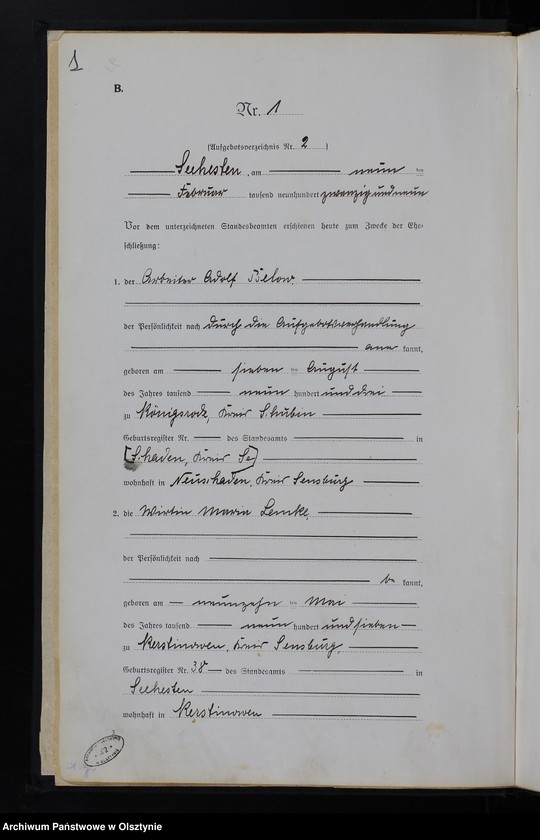 1
B.
Nr. 1
(Aufgebotsverzeichnis Nr. 2)
Seehesten, am neun ten
Februar tausend neunhundert zwanzigundneun
Vor dem unterzeichneten Standesbeamten erschienen heute zum Zwecke der Ehe-
schließung:
1. der Arbeiter Adolf Below
der Persönlichkeit nach durch die Aufgebotsverhandlung
aner kannt,
geboren am sieben ten August
des Jahres tausend neun hundert und drei
zu Königsrode, Kreis Schubin
Geburtsregister Nr. des Standesamts in
[Schaden, Kreis Se]
wohnhaft in Neuschaden, Kreis Sensburg
2. die Wirtin Maria Lemke
der Persönlichkeit nach
be kannt,
geboren am neunzehn ten Mai
des Jahres tausend neun hundert und sieben
zu Kerstinowen, Kreis Sensburg,
Geburtsregister Nr. 38 des Standesamts in
Seehesten
wohnhaft in Kerstinowen
Archiwum Państwowe w Olsztynie